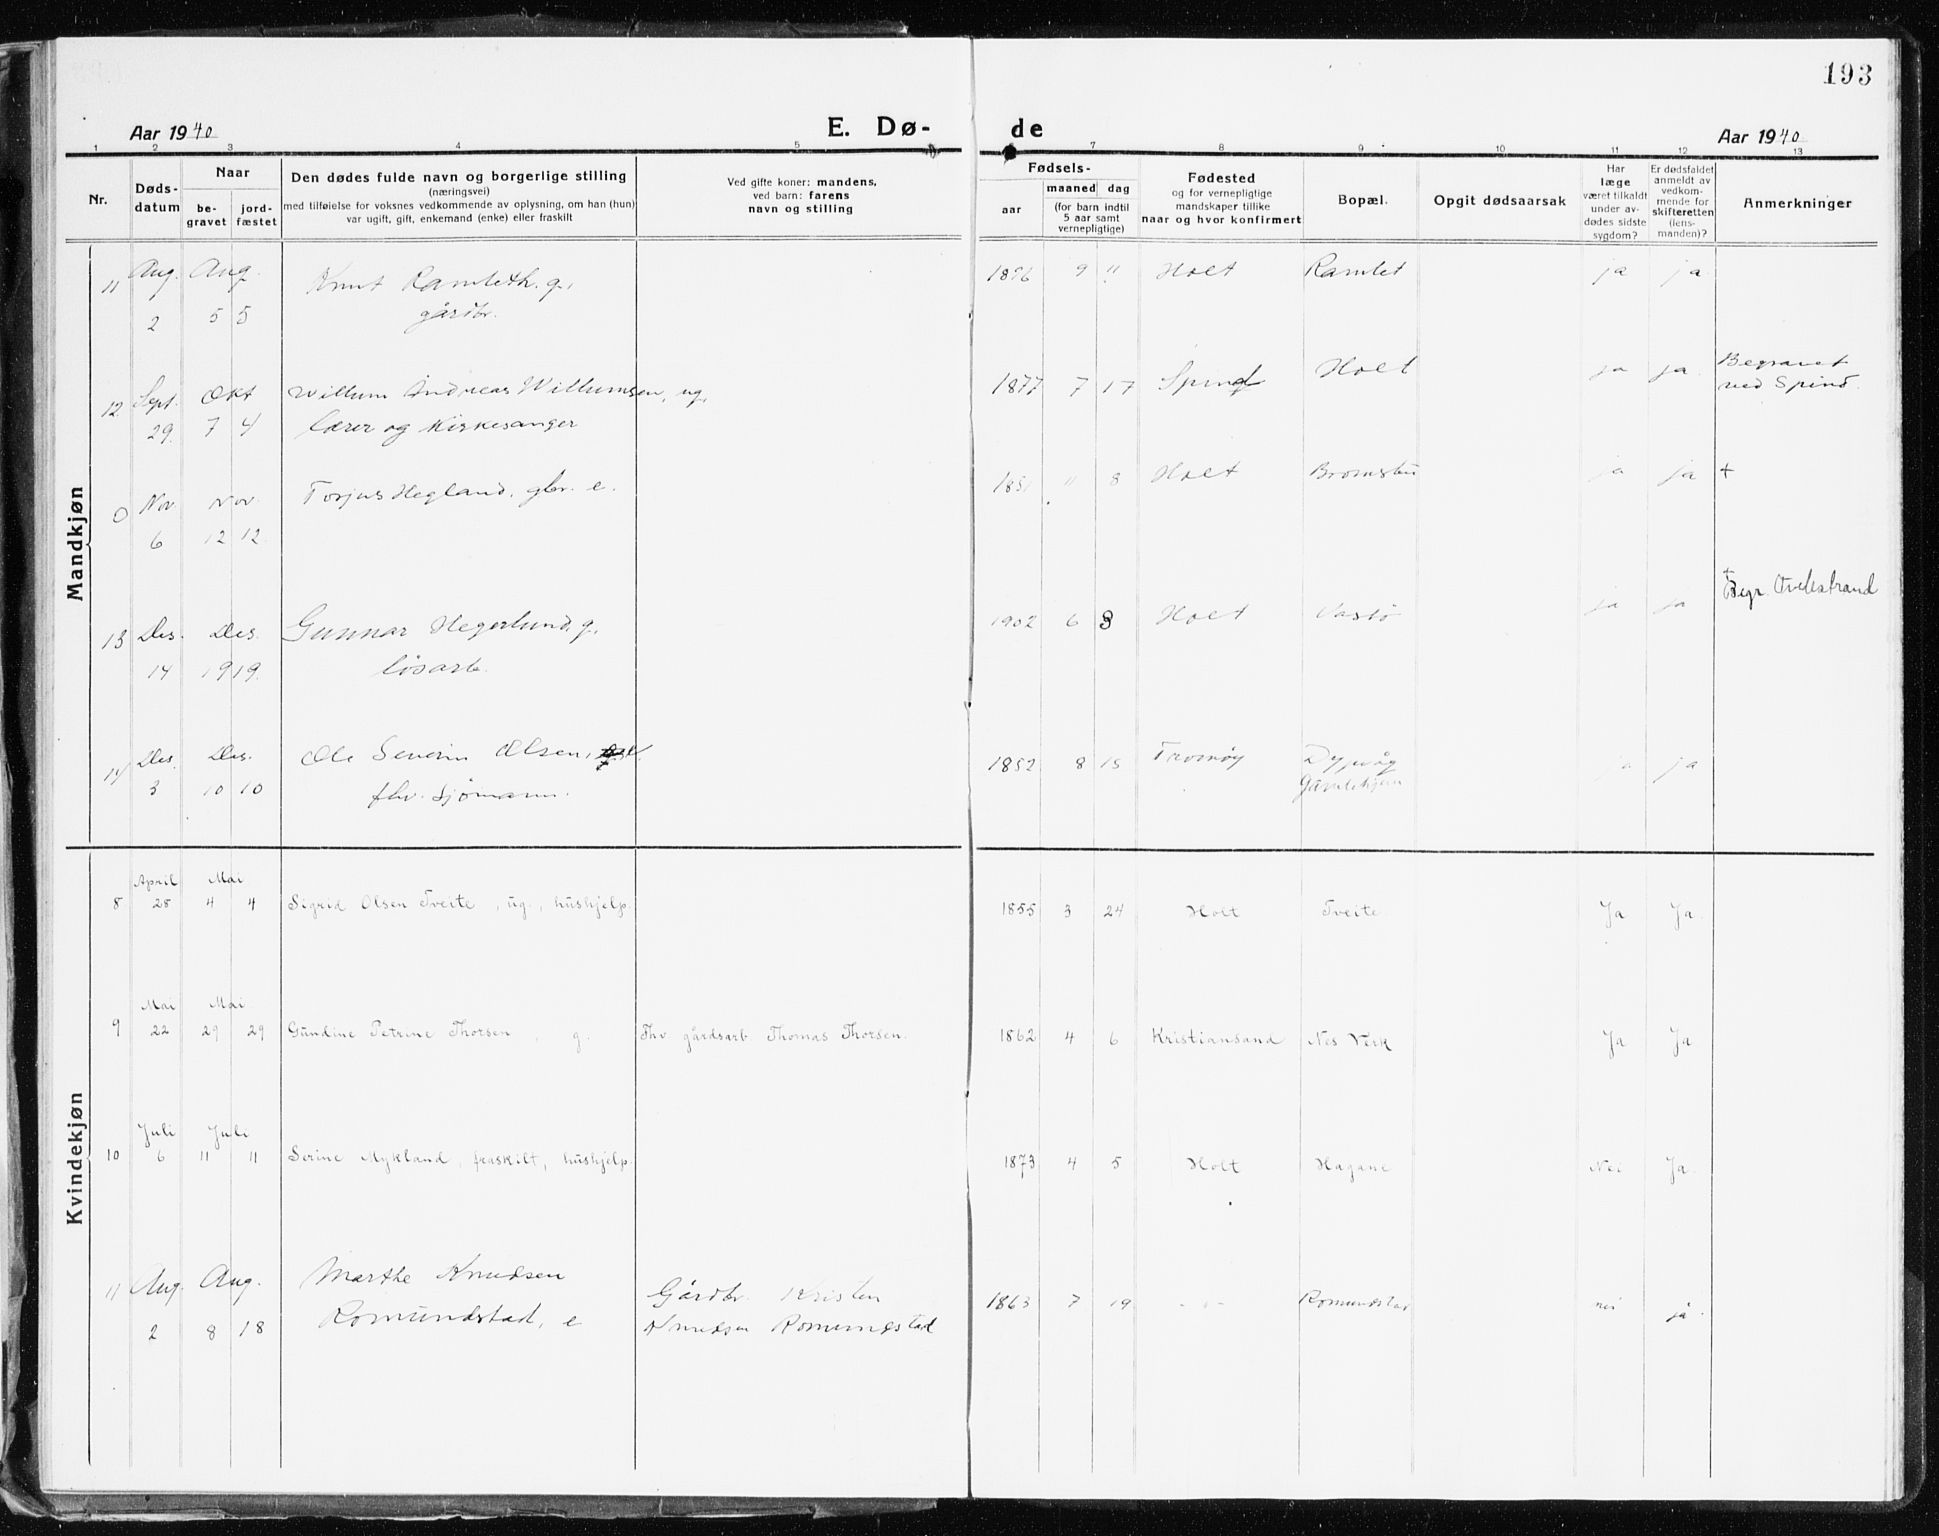 193
Aar 1940
E. Dø-
de
Aar 1940
1 2 3 4 5 7 8 9 10 11 12 13
Nr.
Døds-
datum
Naar
be-
gravet
jord-
fæstet
Den dødes fulde navn og borgerlige stilling
(næringsvei)
med tilføielse for voksnes vedkommende av oplysning, om han (hun)
var ugift, gift, enkemand (enke) eller fraskilt
Ved gifte koner: mandens,
ved barn: farens
navn og stilling
Fødsels-
aar
maaned dag
(for barn indtil
5 aar samt
vernepligtige)
Fødested
og for vernepligtige
mandskaper tillike
naar og hvor konfirmert
Bopæl.
Opgit dødsaarsak
Har
læge
været tilkaldt
under av-
dødes sidste
sygdom?
Er dødsfaldet
anmeldt av
vedkom-
mende for
skifteretten
(lens-
manden)?
Anmerkninger
Mandkjøn
11 Aug. Aug. Knut Ramleth. g., 9 11 Holt Ramlet ja ja
2 5 5 gårdbr.
12 Sept. Okt Willum Andreas Willumsen, ug, 1877 7 17 Spind Holt ja ja. Begravet
ved Spind.
29. 7 4 lærer og kirkesanger
0 Nov Nov. Torjus Hegland, gbr. e. 11 8 Holt Bromsbu ja ja +
6 12 12
13 Des. Des. Gunnar Hegerlund, g., 1902 6 3 Holt ja ja + Begr. Tvedestrand
14 19 19. løsarb.
14 Des. Des. Ole Severin Olsen, 1852 8 15 Tromøy Dypvåg ja ja
Gamlehjem
3 10 10 fhv. sjømann.
Kvindekjøn
April Mai
8 28 4 4 Sigrid Olsen Tveite, ug., hushjelp. 1855 3 24 Holt Tveite. Ja Ja.
Mai Mai
9 22 29 29 Gundine Petrine Thorsen, g. Fhv gårdsarb Thomas Thorsen. 1862 4 6 Kristiansand Nes Verk Ja Ja
Juli Juli
10 6 11 11 Serine Mykland, fraskilt, hushjelp. 1873 4 5 Holt Hagane Nei Ja.
11 Aug. Aug. Marthe Knudsen Gårdbr. Kristen 1863 7 19 - " - Romundstad nei ja.
2 8 18 Romundstad, e Knudsen Romundstad